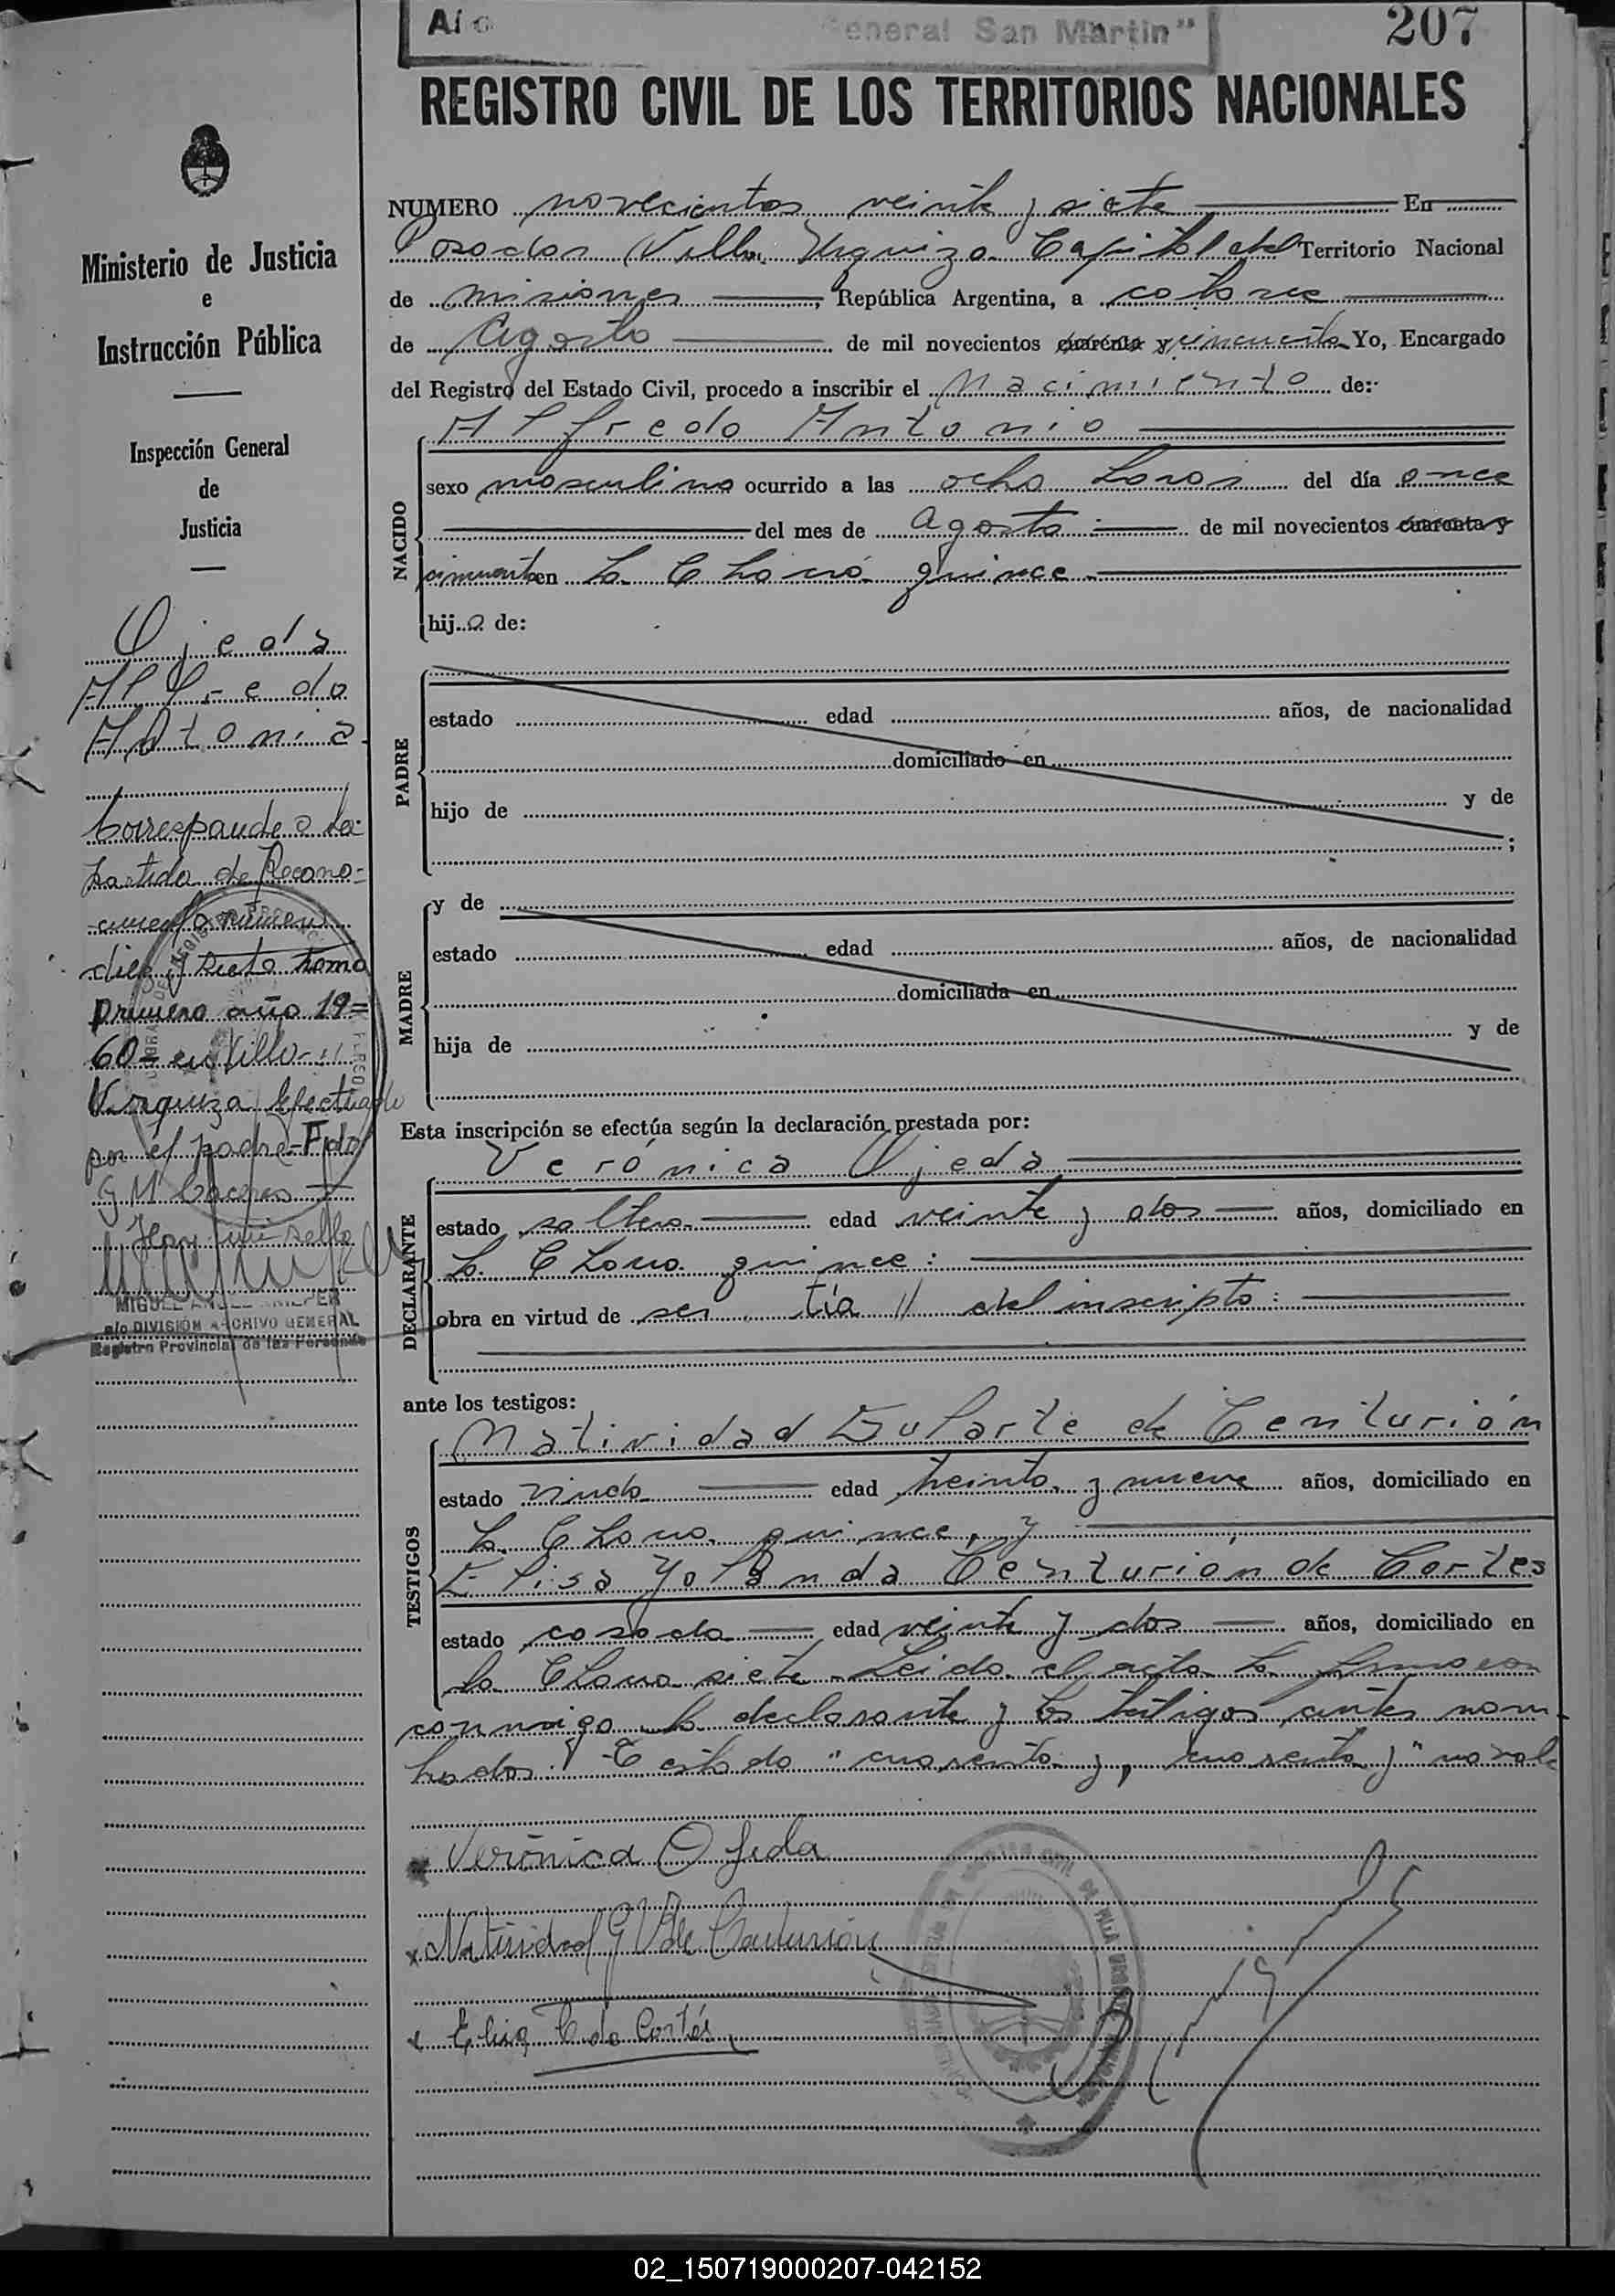 "General San Martin"
207
REGISTRO CIVIL DE LOS TERRITORIOS NACIONALES
Ministerio de Justicia
e
Instrucción Pública
Inspección General
de
Justicia
Ojeda
Alfredo
Antonio
Corresponde a la
Partida de Recono-
cimiento número
diez y siete tomo
primero año 19=
60= en Villa
Urquiza efectuado
por el padre - Fdo
G M Caceres
Hay un sello
MIGUEL ANGEL
a/c DIVISIÓN ARCHIVO GENERAL
Registro Provincial de las Personas
NUMERO novecientos veinte y siete En
Posadas Villa Urquiza Capital del Territorio Nacional
de Misiones, República Argentina, a catorce
de Agosto de mil novecientos cuarenta y cincuenta Yo, Encargado
del Registro del Estado Civil, procedo a inscribir el Nacimiento de:
NACIDO
Alfredo Antonio
sexo masculino ocurrido a las ocho horas del día once
del mes de agosto de mil novecientos cuarenta y
cincuenta en La Chacra quince
hij o de:
PADRE
estado edad años, de nacionalidad
domiciliado en
hijo de y de
;
MADRE
y de
estado edad años, de nacionalidad
domiciliada en
hija de y de
Esta inscripción se efectúa según la declaración prestada por:
DECLARANTE
Verónica Ojeda
estado soltera edad veinte y dos años, domiciliado en
La Chacra quince:
obra en virtud de ser tía del inscripto:
ante los testigos:
TESTIGOS
Natividad Duarte de Centurión
estado viuda edad treinta y nueve años, domiciliado en
La Chacra quince, y
Elisa Yolanda Centurión de Cortes
estado casada edad veinte y dos años, domiciliado en
la Chacra siete. Leida el acta la firmaron
conmigo la declarante y los testigos antes nom-
brados. Testado "cuarenta y, cuarenta y" no vale
Verónica Ojeda
Natividad G V de Centurión
Elisa C de Cortés
02_150719000207-042152